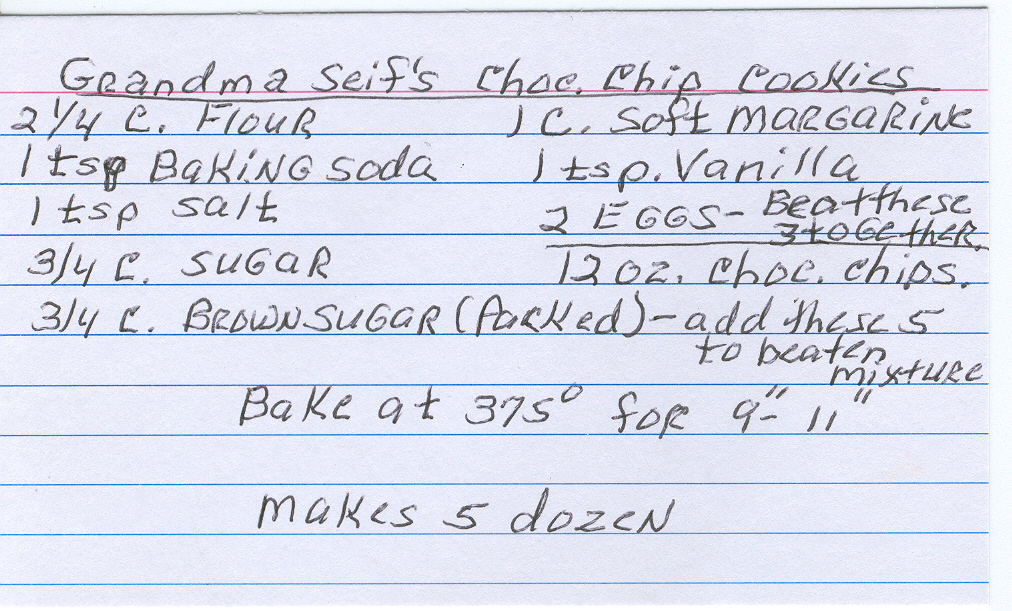 Grandma Seif's Choc. Chip Cookies
2 1/4 C. Flour
1 tsp Baking soda
1 tsp salt
3/4 C. SUGAR
3/4 C. BROWN SUGAR (Packed) - add these 5
to beaten
mixture
1 C. Soft MARGARINE
1 tsp. Vanilla
2 EGGS - Beat these
3 toGether.
12 oz. Choc. Chips.
Bake at 375° for 9"- 11"
Makes 5 dozen